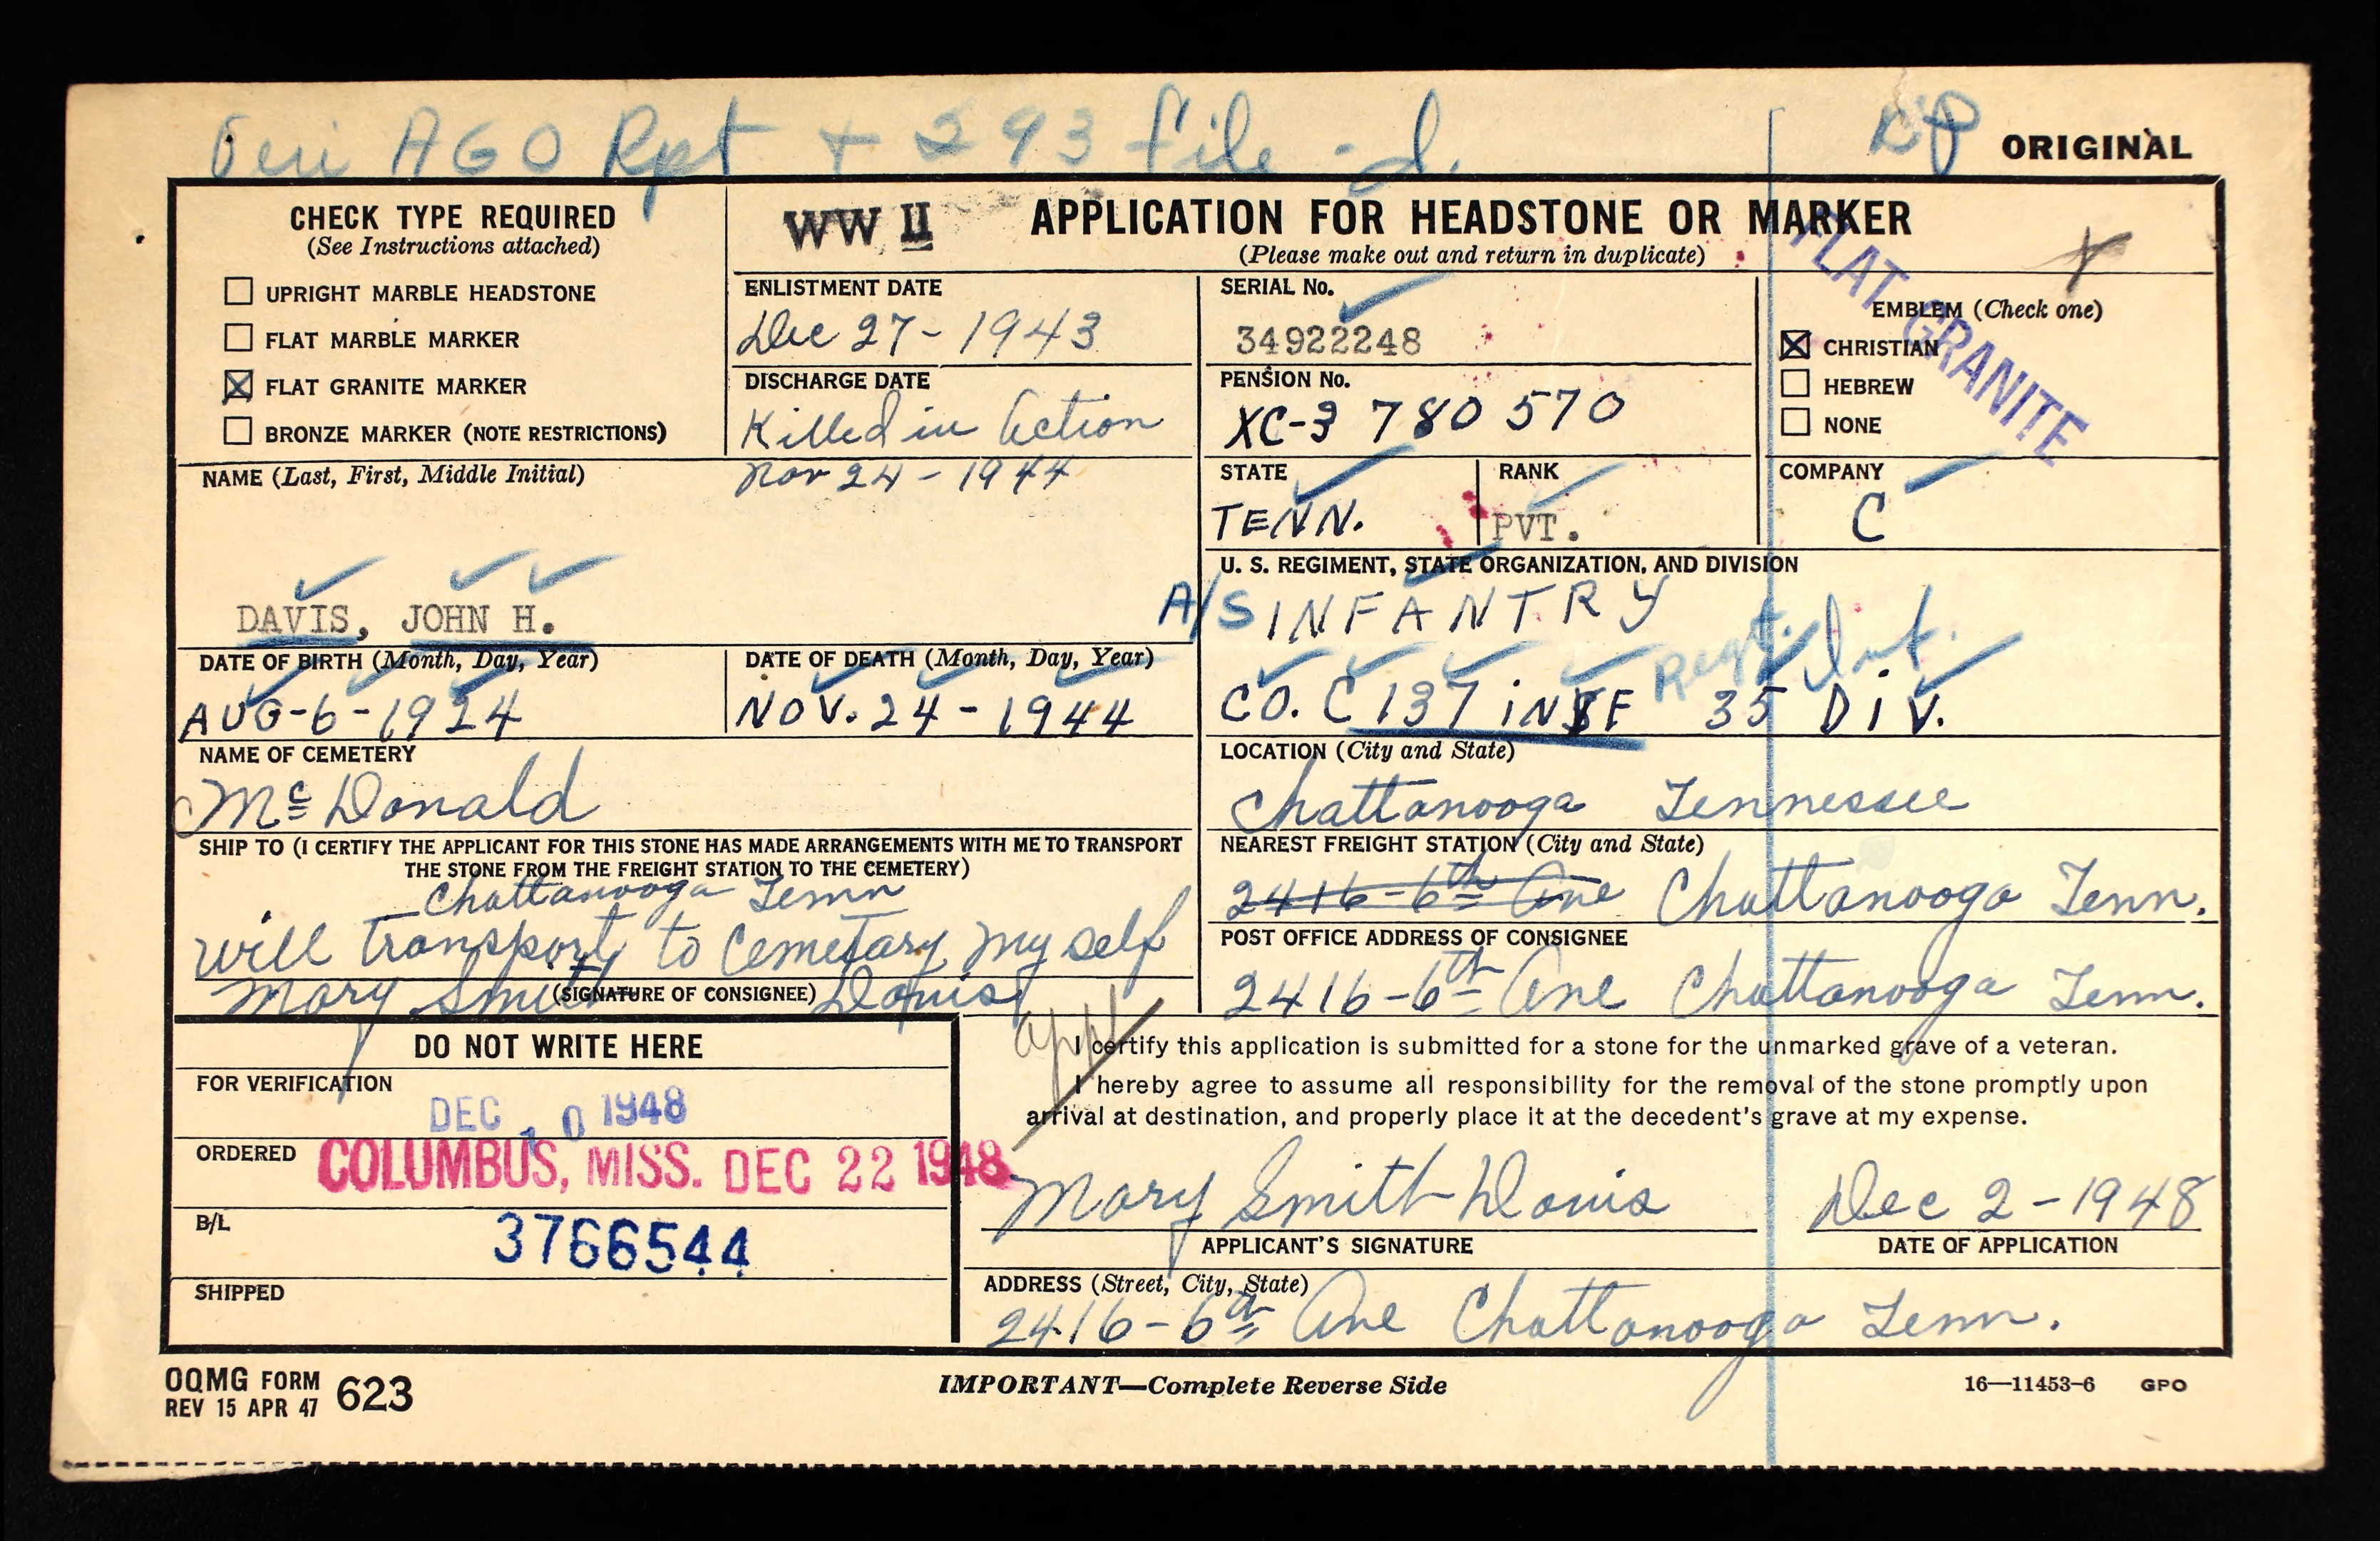 Veri AGO Rpt + 293 file - d.
ORIGINAL
CHECK TYPE REQUIRED
(See Instructions attached)
UPRIGHT MARBLE HEADSTONE
FLAT MARBLE MARKER
FLAT GRANITE MARKER
BRONZE MARKER (NOTE RESTRICTIONS)
WW II
APPLICATION FOR HEADSTONE OR MARKER
(Please make out and return in duplicate)
FLAT GRANITE
ENLISTMENT DATE
Dec 27 - 1943
DISCHARGE DATE
Killed in Action
Nov 24 - 1944
SERIAL No.
34922248
PENSION No.
XC-3 780 570
EMBLEM (Check one)
CHRISTIAN
HEBREW
NONE
NAME (Last, First, Middle Initial)
DAVIS, JOHN H.
STATE
TENN.
RANK
PVT.
COMPANY
C
U. S. REGIMENT, STATE ORGANIZATION, AND DIVISION
A/S INFANTRY
Regt. Inf.
CO. C 137 INF 35 DIV.
DATE OF BIRTH (Month, Day, Year)
AUG-6-1924
DATE OF DEATH (Month, Day, Year)
NOV. 24 - 1944
NAME OF CEMETERY
McDonald
LOCATION (City and State)
Chattanooga Tennessee
SHIP TO (I CERTIFY THE APPLICANT FOR THIS STONE HAS MADE ARRANGEMENTS WITH ME TO TRANSPORT
THE STONE FROM THE FREIGHT STATION TO THE CEMETERY)
Chattanooga Tenn
will transport to Cemetary my self
Mary Smith Davis
(SIGNATURE OF CONSIGNEE)
NEAREST FREIGHT STATION (City and State)
2416-6th Ave Chattanooga Tenn.
POST OFFICE ADDRESS OF CONSIGNEE
2416-6th Ave Chattanooga Tenn.
DO NOT WRITE HERE
FOR VERIFICATION
DEC 10 1948
ORDERED
COLUMBUS, MISS. DEC 22 1948
B/L
3766544
SHIPPED
appl
I certify this application is submitted for a stone for the unmarked grave of a veteran.
I hereby agree to assume all responsibility for the removal of the stone promptly upon
arrival at destination, and properly place it at the decedent's grave at my expense.
Mary Smith Davis
APPLICANT'S SIGNATURE
Dec 2 - 1948
DATE OF APPLICATION
ADDRESS (Street, City, State)
2416-6th Ave Chattanooga Tenn.
OQMG FORM 623
REV 15 APR 47
IMPORTANT—Complete Reverse Side
16—11453-6 GPO